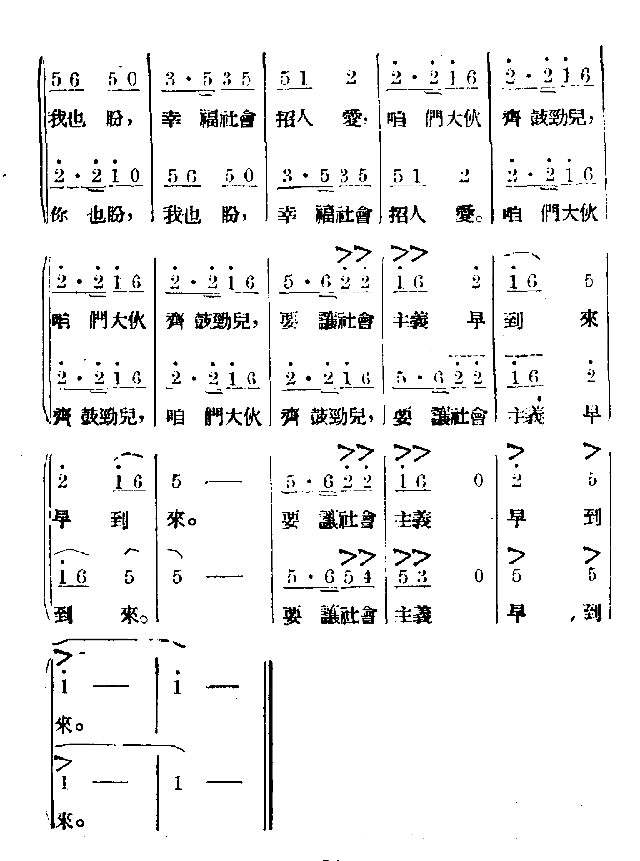 56 50 3·535 51 2 2·216 2·216
我也盼, 幸福社會 招人愛, 咱們大伙 齊鼓勁兒,
2·210 56 50 3·535 51 2 2·216
你也盼, 我也盼, 幸福社會 招人愛。咱們大伙
2·216 2·216 5·622 16 2 16 5
咱們大伙 齊鼓勁兒, 要讓社會 主義早 到來
2·216 2·216 2·216 5·622 16 2
齊鼓勁兒, 咱們大伙 齊鼓勁兒, 要讓社會 主義早
2 16 5 — 5·622 16 0 2 5
早到 來。 要讓社會 主義 早到
16 5 5 — 5·654 53 0 5 5
到來。 要讓社會 主義 早到
1 — 1 —
來。
1 — 1 —
來。